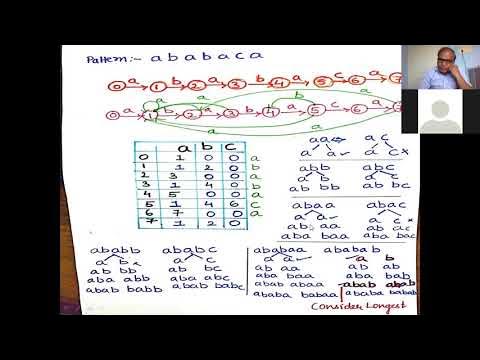 Pattern:- a b a b a c a
0 a 1 b 2 a 3 b 4 a 5 c 6 a 7
a a b a
0 a 1 b 2 a 3 b 4 a 5 c 6 a 7
a a
a b c
0 1 0 0 a
1 1 2 0 b
2 3 0 0 a
3 1 4 0 b
4 5 0 0 a
5 1 4 6 c
6 7 0 0 a
7 1 2 0
aa ac
a a ✓ a c ×
abb abc
a b a c
ab bb ab bc
abaa abac
a a ✓ a c ×
ab aa ab ac
aba baa aba bac
ababb ababc
a b × a c
ab bb ab bc
aba abb aba abc
abab babb abab babc
ababaa ababab
a a ✓ a b
ab aa ab ab
aba baa aba bab
abab abaa abab abab
ababa babaa ababa babab
Consider Longest